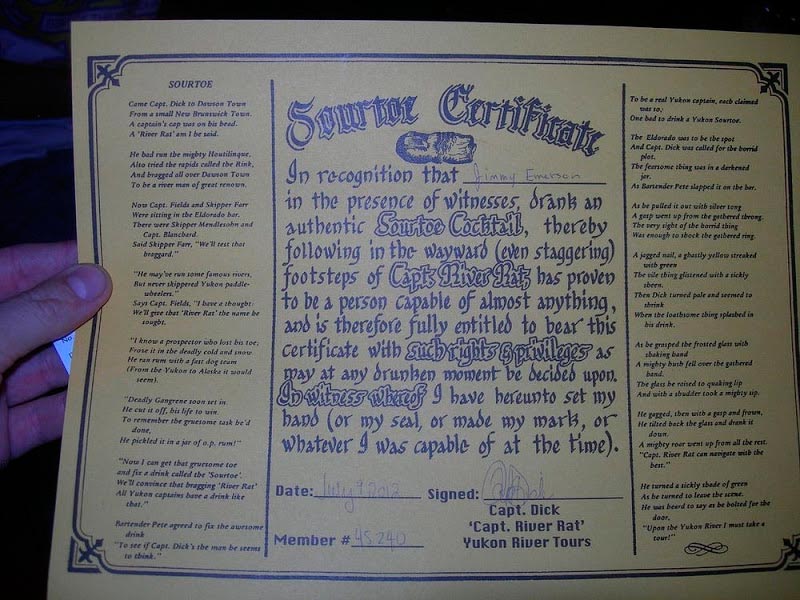 SOURTOE
Came Capt. Dick to Dawson Town
From a small New Brunswick Town.
A captain's cap was on his head.
A 'River Rat' am I he said.
He had run the mighty Houtilinque,
Alto tried the rapids called the Rink,
And bragged all over Dawson Town
To be a river man of great renown.
Now Capt. Fields and Skipper Farr
Were sitting in the Eldorado bar.
There were Skipper Mendlesohn and
Capt. Blanchard.
Said Skipper Farr, "We'll test that
braggard."
"He may've run some famous rivers,
But never skippered Yukon paddle-
wheelers."
Says Capt. Fields, "I have a thought:
We'll give that 'River Rat' the name he
sought.
"I know a prospector who lost his toe;
Froze it in the deadly cold and snow.
He ran rum with a fast dog team
(From the Yukon to Alaska it would
seem).
"Deadly Gangrene soon set in.
He cut it off, his life to win.
To remember the gruesome task he'd
done,
He pickled it in a jar of o.p. rum!"
"Now I can get that gruesome toe
and fix a drink called the 'Sourtoe'.
We'll convince that bragging 'River Rat'
All Yukon captains have a drink like
that."
Bartender Pete agreed to fix the awesome
drink
"To see if Capt. Dick's the man he seems
to think."
Sourtoe Certificate
In recognition that Jimmy Emerson
in the presence of witnesses, drank an
authentic Sourtoe Cocktail, thereby
following in the wayward (even staggering)
footsteps of Capt. River Rat, has proven
to be a person capable of almost anything,
and is therefore fully entitled to bear this
certificate with such rights & privileges as
may at any drunken moment be decided upon.
In witness whereof I have hereunto set my
hand (or my seal, or made my mark, or
whatever I was capable of at the time).
Date: July 9 2012 Signed:
Capt. Dick
Member # 45240
'Capt. River Rat'
Yukon River Tours
To be a real Yukon captain, each claimed
was to;
One had to drink a Yukon Sourtoe.
The Eldorado was to be the spot
And Capt. Dick was called for the horrid
plot.
The fearsome thing was in a darkened
jar.
As Bartender Pete slapped it on the bar.
As he pulled it out with silver tong
A gasp went up from the gathered throng.
The very sight of the horrid thing
Was enough to shock the gathered ring.
A jagged nail, a ghastly yellow streaked
with green
The vile thing glistened with a sickly
sheen.
Then Dick turned pale and seemed to
shrink
When the loathsome thing splashed in
his drink.
As he grasped the frosted glass with
shaking hand
A mighty hush fell over the gathered
band.
The glass he raised to quaking lip
And with a shudder took a mighty sip.
He gagged, then with a gasp and frown,
He tilted back the glass and drank it
down.
A mighty roar went up from all the rest.
"Capt. River Rat can navigate with the
best."
He turned a sickly shade of green
As he turned to leave the scene.
He was heard to say as he bolted for the
door,
"Upon the Yukon River I must take a
tour!"